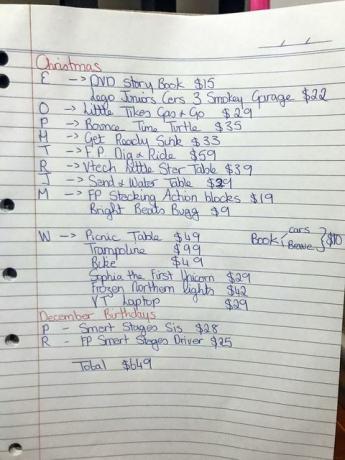 Christmas
E -> DVD Story Book $15
Lego Juniors Cars 3 Smokey Garage $22
O -> Little Tikes Gas & Go $29
P -> Bounce Time Turtle $35
H -> Get Ready Sink $33
T -> FP Dig & Ride $59
R -> Vtech Kittle Star Table $39
J -> Sand & Water Table $29
M -> FP Stacking Action blocks $19
Bright Beats Bugg $9
W -> Picnic Table $49 Book { cars Brave } $10
Trampoline $99
Bike $49
Sophia the First Unicorn $29
Frozen Northern Lights $42
VT Laptop $29
December Birthdays
P - Smart Stages Sis $28
R - FP Smart Stages Driver $25
Total $649